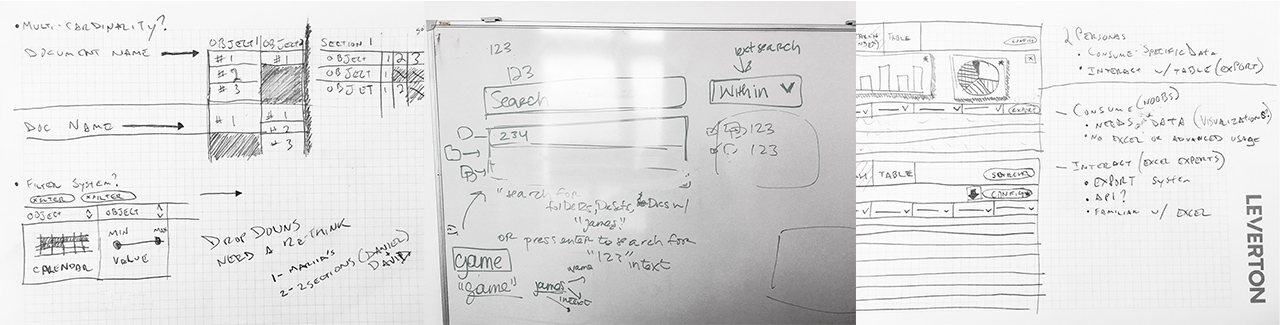 • MULTI-CARDINALITY?
DOCUMENT NAME
OBJECT 1 OBJECT 2
# 1 # 1
# 2
# 3
DOC NAME
# 1 # 1
# 2
# 3
SECTION 1
OBJECT 1 2 3
OBJECT 1 2
OBJECT 1 2
• FILTER SYSTEM?
XFILTER XFILTER
OBJECT OBJECT
CALENDAR
MIN MAX
VALUE
DROPDOWNS
NEED A RE-THINK
1-
2-2 SECTIONS (DANIEL
DAVID)
123
123
Search
234
text search
Within
123
123
"search for
folders, Docs w/
"james"
OR press enter to search for
"123" in text
game
"game"
james
name
intext
TABLE
CONFIG
EXPORT
TABLE
SEARCH
CONFIG
2 PERSONAS
• CONSUME SPECIFIC DATA
• INTERACT W/ TABLE (EXPORT)
- CONSUME (NOOBS)
• NEEDS DATA (VISUALIZATIONS?)
• NO EXCEL OR ADVANCED USAGE
- INTERACT (EXCEL EXPERTS)
• EXPORT SYSTEM
• API?
• FAMILIAR W/ EXCEL
LEVERTON